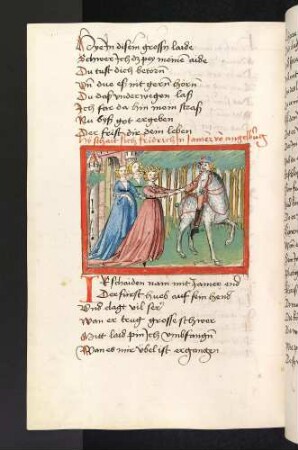 In disem grossen laide
Schwer ich dir pey meinem aide
Du tust dich betorn
Vnd du es nit gern horn
Du das vnderwegen lass
Ich far da hin mein strass
Nu biss got ergeben
Der frist dir dein leben
schait sich fridereich Jamer
IR schaiden nam mit Jamer end
Der furst hueb auf sein hend
Vnd clagt vil ser
Wan er trug grosse schwer
Mitt laid pin ich vmbfangn
Wan es mir vbel ist ergangen